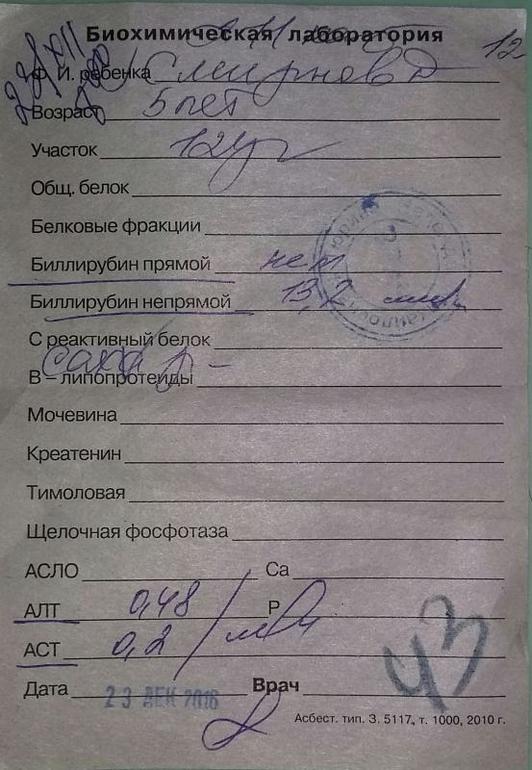 Биохимическая лаборатория
12
Ф. И. ребенка Смирнов Д
Возраст 5 лет
Участок 12
Общ. белок
Белковые фракции
Биллирубин прямой нет
Биллирубин непрямой 13,2
С реактивный белок
сахар –
В – липопротеиды
Мочевина
Креатенин
Тимоловая
Щелочная фосфотаза
АСЛО Са
АЛТ 0,48 Р
АСТ 0,2
43
Дата 23 ДЕК 2016 Врач
Асбест. тип. З. 5117, т. 1000, 2010 г.